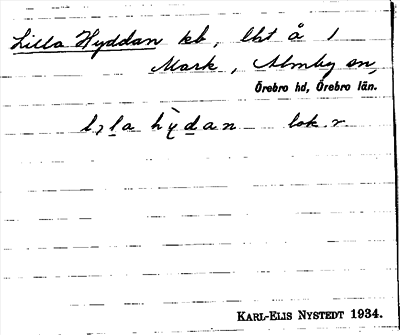 Lilla Hyddan kb, lht å 1
Mark, Almby sn,
Örebro hd, Örebro län.
lok. r.
KARL-ELIS NYSTEDT 1934.